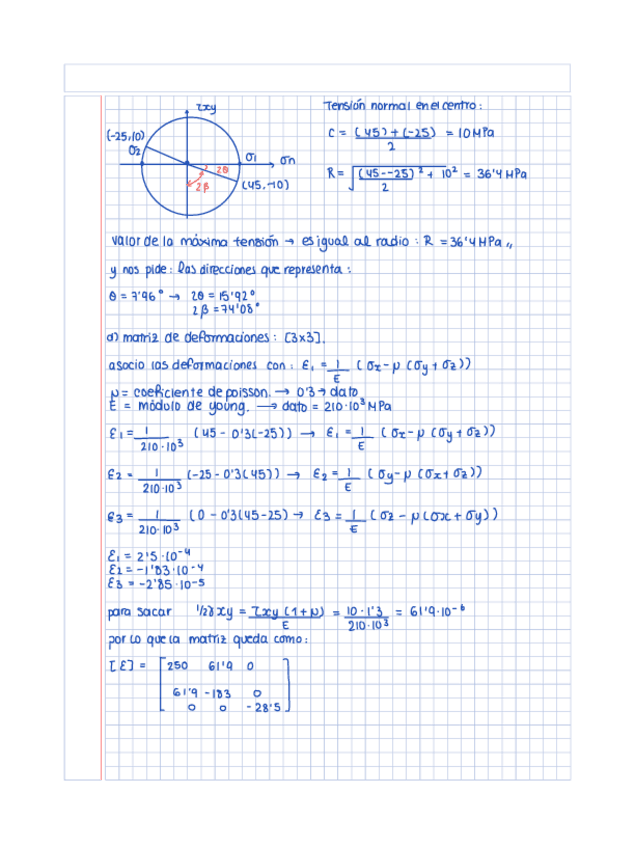 τxy
Tensión normal en el centro:
(-25,10)
σ2
C = (45)+(-25) = 10MPa
2
σ1
σn
2θ
2β
(45,-10)
R = √(45--25)² + 10² = 36'4 MPa
2
valor de la máxima tensión → es igual al radio : R = 36'4 MPa,,
y nos pide: las direcciones que representa:
θ = 7'96° → 2θ = 15'92°
2β = 74'08°
d) matriz de deformaciones : [3x3].
asocio las deformaciones con: ε1 = 1/E (σx - μ (σy + σz))
μ = coeficiente de poisson. → 0'3 → dato
E = módulo de young. → dato = 210·10³ MPa
ε1 = 1/210·10³ (45 - 0'3(-25)) → ε1 = 1/E (σx - μ (σy + σz))
ε2 = 1/210·10³ (-25 - 0'3(45)) → ε2 = 1/E (σy - μ (σx + σz))
ε3 = 1/210·10³ (0 - 0'3(45-25) → ε3 = 1/E (σz - μ (σx + σy))
ε1 = 2'5·10⁻⁴
ε2 = -1'83·10⁻⁴
ε3 = -2'85·10⁻⁵
para sacar 1/2γxy = τxy (1+μ)/E = 10·1'3/210·10³ = 61'9·10⁻⁶
por lo que la matriz queda como:
[ε] = [250 61'9 0
61'9 -183 0
0 0 -28'5]